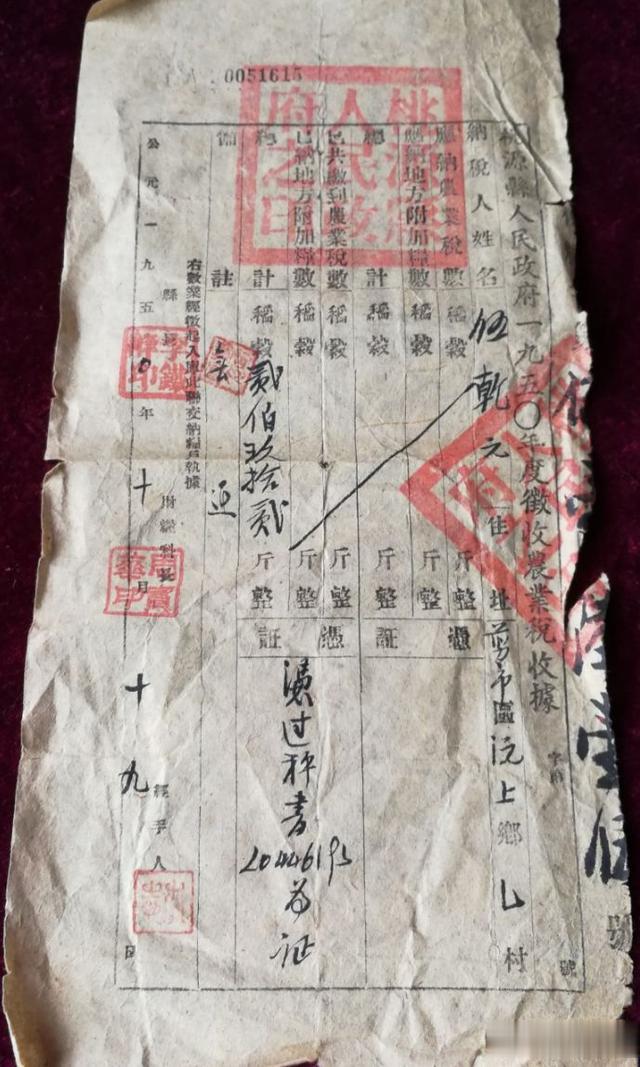 0051615
桃源縣人民政府之印
桃源縣人民政府一九五〇年度徵收農業稅收據
字第 號
納稅人姓名 伍乾元 住址 區沅上鄉乚村
應納農業稅數 稻穀 斤整
應納地方附加糧數 稻穀 斤整
總計 稻穀 斤整
憑証
已共繳到農業稅數 稻穀 斤整
已納地方附加糧數 稻穀 斤整
總計 稻穀 貳佰玖拾貳 斤整
憑証 憑过秤書 为证
備註
右數業經徵起入庫此聯交納糧戶執據
縣長
財糧科長
經手人
公元一九五〇年十月十九日